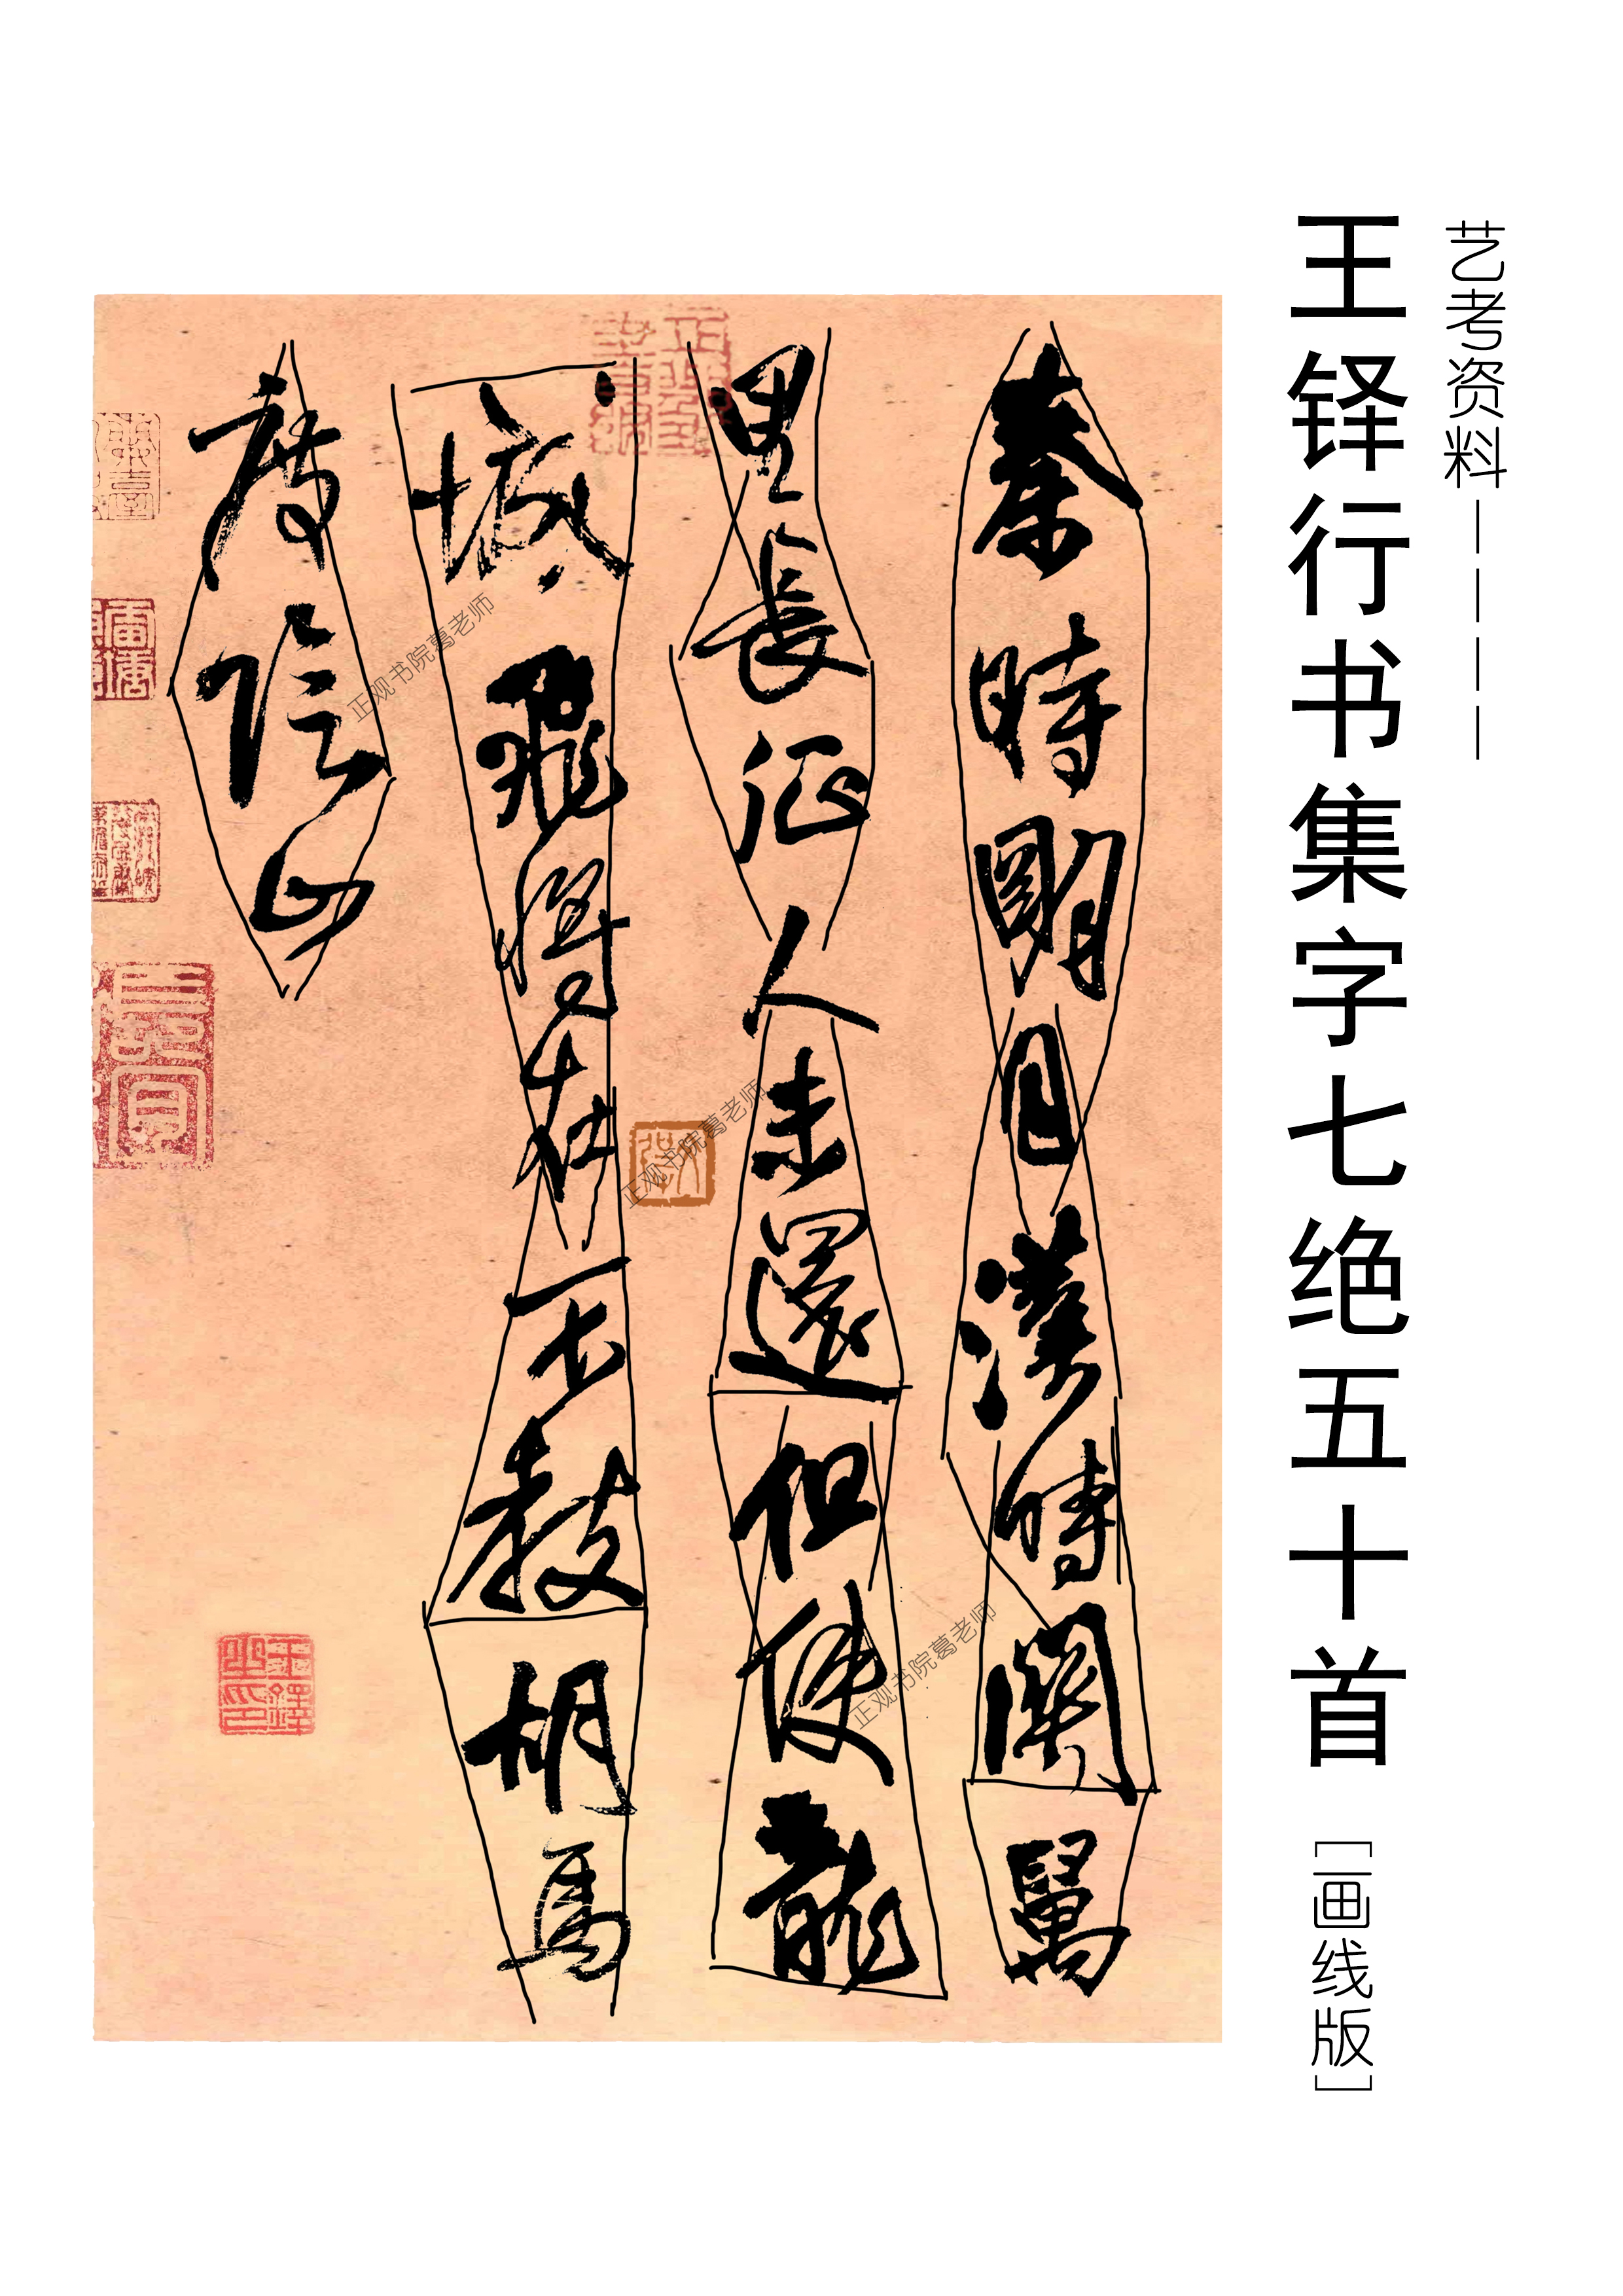 艺考资料————
王铎行书集字七绝五十首［画线版］
秦時明月漢時關萬
里長征人未還但使龍
城飛將在不教胡馬
度陰山
正观书院葛老师
正观书院葛老师
正观书院葛老师
王鐸之印